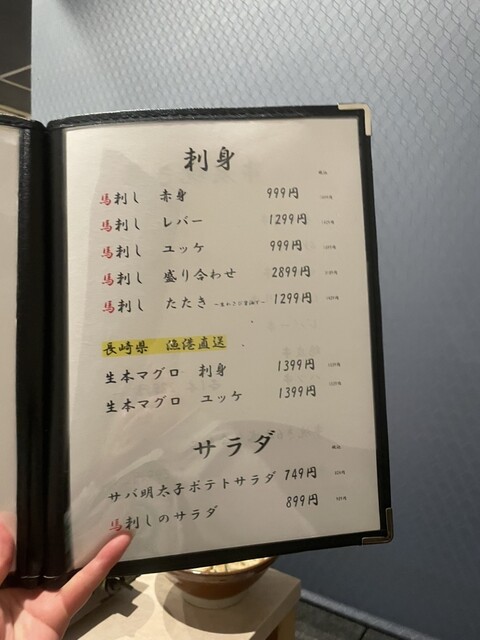 刺身
馬刺し 赤身 999円
馬刺し レバー 1299円
馬刺し ユッケ 999円
馬刺し 盛り合わせ 2899円
馬刺し たたき 1299円
長崎県 漁港直送
生本マグロ 刺身 1399円
生本マグロ ユッケ 1399円
サラダ
サバ明太子ポテトサラダ 749円
馬刺しのサラダ 899円